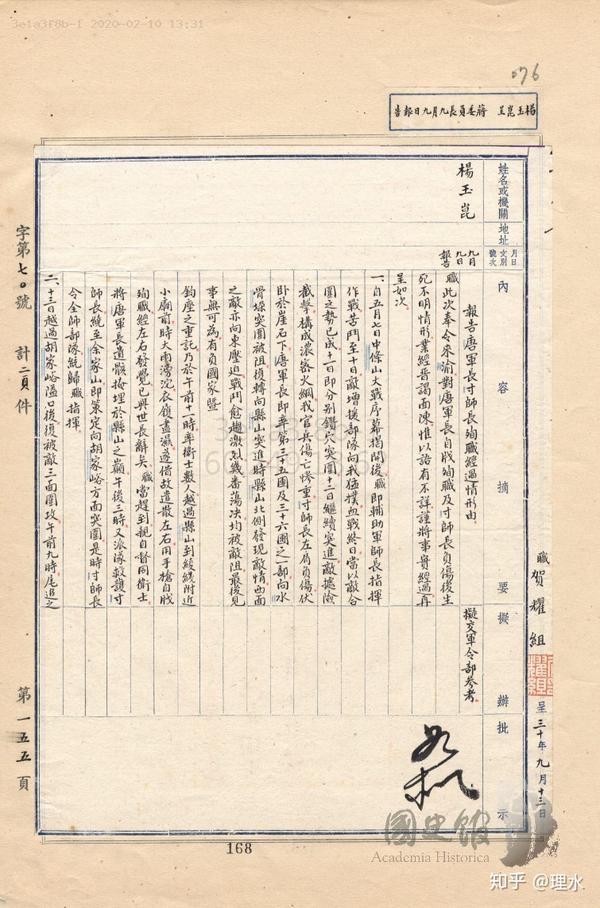 3e1a3f8b-f 2020-02-10 13:31
076
楊玉崑呈 蔣委員長九月九日報告
職 賀耀組 呈 三十年九月十三日
姓名或機關 地址
月日 文別 號次
內容摘要
擬辦
批示
楊玉崑
九月九日
報告
報告唐軍長寸師長殉職經過情形由
職此次奉令來渝對唐軍長自戕殉職及寸師長負傷後生
死不明情形業經晉謁面陳惟以語有不詳謹將事實經過再
呈如次
一、自五月七日中條山大戰序幕揭開後職即輔助軍師長指揮
作戰苦鬥至十日敵增援部隊向我猛撲血戰終日當以敵合
圍之勢已成十一日即分別鑽穴突圍十二日繼續突進敵據險
截擊構成濃密火網我官兵傷亡慘重寸師長左肩負傷伏
臥於崖石下唐軍長即率第三十五團及三十六團之一部向水
骨垛突圍被阻復轉向縣山突進時縣山北側發現敵情西面
之敵亦向東壓迫戰鬥愈趨激烈幾番蕩决均被敵阻最後見
事無可為有負國家暨
鈞座之重託乃於午前十一時率衛士數人越過縣山到綾綫附近
小廟前時大雨滂沱衣領盡濕遂借故遣散左右用手槍自戕
殉職經左右發覺已與世長辭矣職當趕到親自督同衛士
將唐軍長遺骸掩埋於縣山之巔午後三時又派隊救護寸
師長繞至余家山即策定向胡家峪方面突圍是時寸師長
令全師部隊統歸職指揮
二、十三日越過胡家峪溢口後復被敵三面圍攻午前九時尾追之
擬交軍令部參考
如擬
字第七〇號 計二頁件 第一五五頁
168
國史館
Academia Historica
知乎 @理水